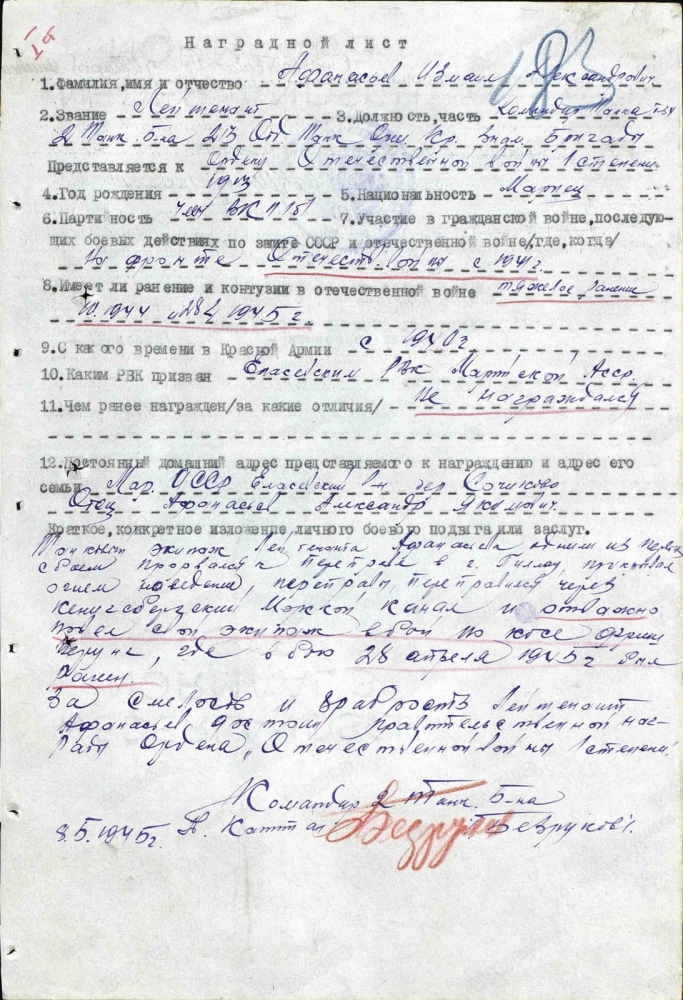 Наградной лист
1.Фамилия,имя и отчество Афанасьев Измаил Александрович
2.Звание Лейтенант 3.Должность,часть Командир танка Т-34
2 Танк. Б-на 213 Отд. Танк Орш. Кр. Знам. Бригады
Представляется к Ордену Отечественной войны 1 степени
4.Год рождения 1913 5.Национальность Мариец
6.Партийность член ВКП/б/ 7.Участие в гражданской войне,последую-
щих боевых действиях по защите СССР и отечественной войне/где,когда/
На фронте Отечеств. войны с 1941г.
8.Имеет ли ранение и контузии в отечественной войне тяжелое ранение
1944 и 28.4.1945г.
9.С какого времени в Красной Армии с 1940г
10.Каким РВК призван Еласовским РВК Марийской Асср.
11.Чем ранее награжден/за какие отличия/ Не награждался
12.Постоянный домашний адрес представляемого к награждению и адрес его
семьи Мар. АССР Еласовский р-н, дер
Отец Афанасьев Александр Якимович.
Краткое,конкретное изложение личного боевого подвига или заслуг.
Танковый экипаж лейтенанта Афанасьева одним из первых
прорвался к переправе в г. Пиллау,
огнем наведение переправы, переправился через
Кенигсбергский Морской канал и отважно
повел свой экипаж в бой по косе Фриш
Нерунг, где в бою 28 апреля 1945г был
Ранен.
За смелость и храбрость лейтенант
Афанасьев достоин правительственной наг-
рады Ордена „Отечественной войны 1 степени".
Командир 2 Танк. Б-на
8.5.1945г. Капитан /Безруков/.